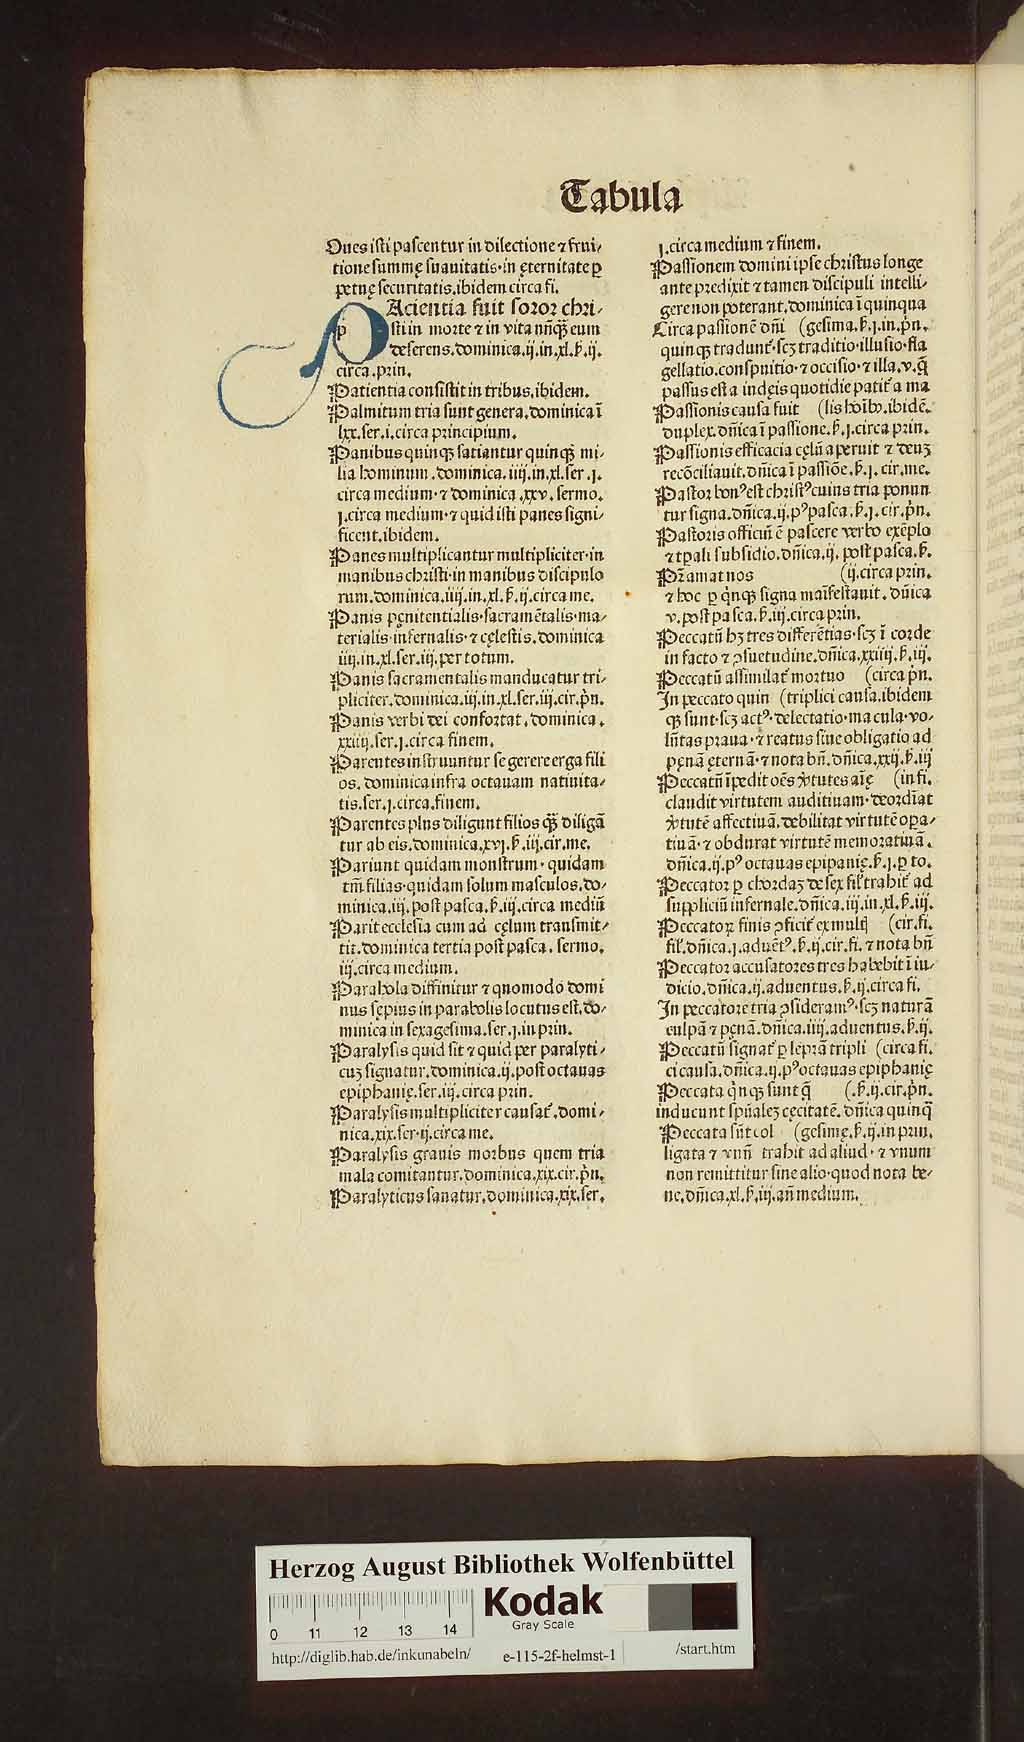 Tabula
Oues isti pascentur in dilectione ⁊ frui-
tione summę suauitatis·in ęternitate ꝑ
petnę securitatis.ibidem circa fi.
PAcientia fuit soror chri-
sti in morte ⁊ in vita nūqꝫ eum
deserens.dominica.ij.in.xl.ẞ.ij.
circa.prin.
Patientia consistit in tribus.ibidem.
Palmitum tria sunt genera.dominica ī
lxx.ser.i.circa principium.
Panibus quinqꝫ satiantur quinqꝫ mi-
lia hominum.dominica.iiij.in.xl.ser.j.
circa medium·⁊ dominica.xxv.sermo.
j.circa medium·⁊ quid isti panes signi-
ficent.ibidem.
Panes multiplicantur multipliciter·in
manibus christi·in manibus discipulo
rum.dominica.iiij.in.xl.ẞ.ij.circa me.
Panis pęnitentialis·sacramētalis·ma-
terialis·infernalis·⁊ cęlestis.dominica
iiij.in.xl.ser.iij.per totum.
Panis sacramentalis manducatur tri-
pliciter.dominica.iij.in.xl.ser.iij.cir.p̄n.
Panis verbi dei confortat.dominica.
xxiiij.ser.j.circa finem.
Parentes instruuntur se gerere erga fili
os.dominica infra octauam natiuita-
tis.ser.j.circa.finem.
Parentes plus diligunt filios qꝫ diligā
tur ab eis.dominica.xvj.ẞ.iij.cir.me.
Pariunt quidam monstrum·quidam
tm̄ filias·quidam solum masculos.do-
minica.iij.post pasca.ẞ.iij.circa mediū
Parit ecclesia cum ad cęlum transmit-
tit.dominica tertia post pasca.sermo.
iij.circa medium.
Parabola diffinitur ⁊ quomodo domi
nus sępius in parabolis locutus est.do-
minica in sexagesima.ser.j.in prin.
Paralysis quid sit ⁊ quid per paralyti-
cuꝫ signatur.dominica.ij.post octauas
epiphanię.ser.iij.circa prin.
Paralysis multipliciter causat̄.domi-
nica.xix.ser·ij.circa me.
Paralysis grauis morbus quem tria
mala comitantur.dominica.xix.cir.p̄n.
Paralyticus sanatur.dominica.xix.ser.
j.circa medium ⁊ finem.
Passionem domini ipse christus longe
ante predixit ⁊ tamen discipuli intelli-
gere non poterant.dominica ī quinqua
Circa passionē dn̄i (gesima.ẞ.j.in.p̄n.
quinqꝫ tradunt̄·scꝫ traditio·illusio·fla
gellatio.conspuitio·⁊ occisio·⁊ illa.v.q̄
passus est a indęis quotidie patit̄ a ma
Passionis causa fuit (lis hoīb9.ibidē.
duplex.dn̄ica ī passione.ẞ.j.circa prin.
Passionis efficacia cęlū aperuit ⁊ deuꝫ
recōciliauit.dn̄ica ī passiōe.ẞ.j.cir.me.
Pastor bonꝰ est christꝰ cuius tria ponun
tur signa.dn̄ica.ij.pꝰ pasca.ẞ.j.cir.p̄n.
Pastoris officiū ē pascere verbo exēplo
⁊ tꝑali subsidio.dn̄ica.ij.post pasca.ẞ.
Pr̄ amat nos (ij.circa prin.
⁊ hoc ꝑ q̄nqꝫ signa maīfestauit.dn̄ica
v.post pasca.ẞ.iij.circa prin.
Peccatū hꝫ tres differētias·scꝫ ī corde
in facto ⁊ ꝯsuetudine.dn̄ica.xxiiij.ẞ.iij.
Peccatū assimilat̄ mortuo (circa p̄n.
In peccato quin (triplici causa.ibidem
qꝫ sunt·scꝫ actꝰ·delectatio·macula·vo-
lūtas praua·⁊ reatus siue obligatio ad
pęnā ęternā·⁊ nota bn̄.dn̄ica.xxij.ẞ.iij
Peccatū īpedit oēs v̄tutes aīę (in fi.
claudit virtutem auditiuam·deordīat
v̄tutē affectiuā.debilitat virtutē oꝑa-
tiuā·⁊ obdurat virtutē memoratiuā.
dn̄ica.ij.pꝰ octauas epipanię.ẞ.j.ꝑ to.
Peccator ꝑ chordaꝫ de sex fil̄ trahit̄ ad
suppliciū infernale.dn̄ica.iij.in.xl.ẞ.iij.
Peccatoꝝ finis ꝯficit̄ ex mult̄ (cir.fi.
fil̄.dn̄ica.j.aduētꝰ.ẞ.ij.cir.fi.⁊ nota bn̄
Peccator accusatores tres habebit ī iu-
dicio.dn̄ica.ij.aduentus.ẞ.ij.circa fi.
In peccatore tria ꝯsideramꝰ·scꝫ naturā
culpā ⁊ pęnā.dn̄ica.iiij.aduentus.ẞ.ij.
Peccatū signat̄ ꝑ leprā tripli (circa fi.
ci causa.dn̄ica.ij.pꝰ octauas epiphanię
Peccata q̄nqꝫ sunt q̄ (.ẞ.ij.cir.p̄n.
inducunt spūaleꝫ cęcitatē.dn̄ica quinq̄
Peccata sūt col (gesimę.ẞ.ij.in prin.
ligata ⁊ vnū trahit ad aliud·⁊ vnum
non remittitur sine alio·quod nota be-
ne.dn̄ica.xl.ẞ.iij.an̄ medium.
Herzog August Bibliothek Wolfenbüttel
Kodak
Gray Scale
0 11 12 13 14
http://diglib.hab.de/inkunabeln/ e-115-2f-helmst-1 /start.htm